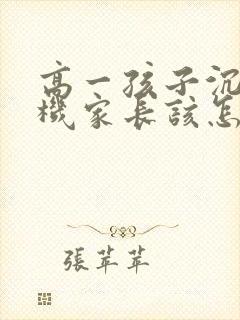 高一孩子沉
機家長該怎
張苹苹